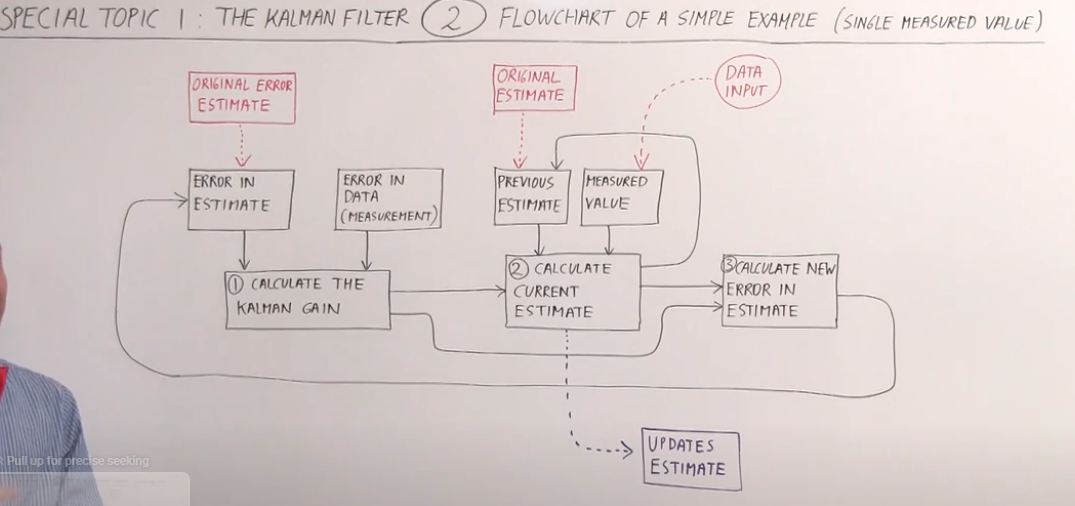 SPECIAL TOPIC 1: THE KALMAN FILTER 2 FLOWCHART OF A SIMPLE EXAMPLE (SINGLE MEASURED VALUE)
ORIGINAL ERROR
ESTIMATE
ORIGINAL
ESTIMATE
DATA
INPUT
ERROR IN
ESTIMATE
ERROR IN
DATA
(MEASUREMENT)
PREVIOUS
ESTIMATE
MEASURED
VALUE
1 CALCULATE THE
KALMAN GAIN
2 CALCULATE
CURRENT
ESTIMATE
3 CALCULATE NEW
ERROR IN
ESTIMATE
UPDATES
ESTIMATE
Pull up for precise seeking